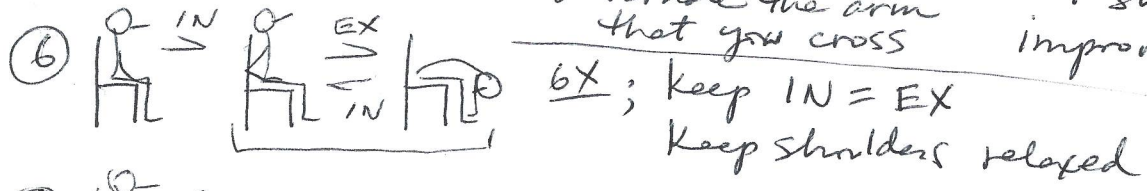 the arm
that you cross
6 IN EX IN 6X; Keep IN = EX
Keep shoulders relaxed